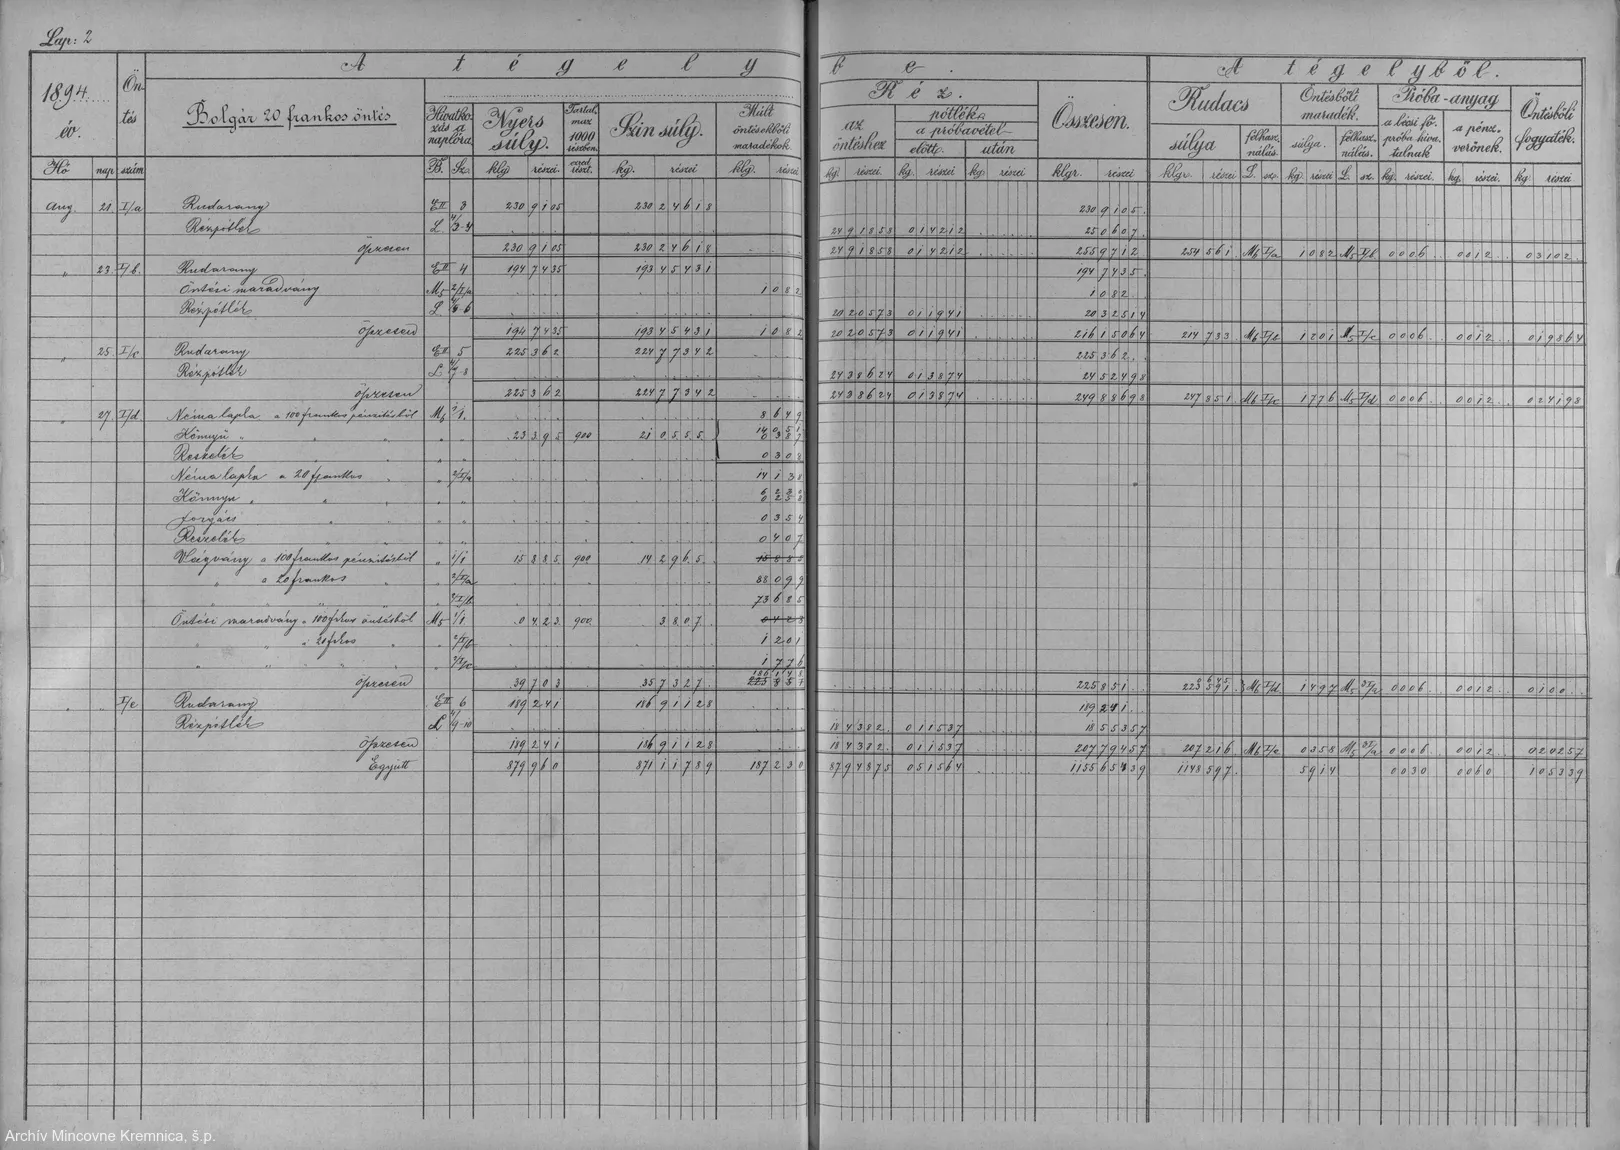 Lap: 2
A tégelybe. A tégelyből.
1894 év.
Öntés
Bolgár 20 frankos öntés
Hivatkozás a naplóra
Nyers súly.
Tartalmaz 1000 részben.
Szin súly.
Múlt öntésekbőli maradékok.
Réz.
az öntéshez
pótlék
a próbavétel
előtt. után
Összesen.
Rudacs
súlya
felhasználás.
Öntésbőli maradék.
súlya.
felhasználás.
Próba-anyag
a bécsi fő próba hivatalnak
a pénzverőnek.
Öntésbőli fogyaték.
Hó nap szám
B. Sz. klg részei. ezred részt. kg. részei klg. részei
kg. részei. kg. részei kg. részei klgr. részei klgr. részei L. sz. kg. részei L. sz. kg. részei. kg. részei. kg részei
Aug. 21. I/a Rudarany E II 3 230 9105 230 24618 230 9105.
Rézpótlék L 24 91858 014212 25 0607.
Öszesen 230 9105 230 24618 24 91858 014212 255 9712 254 561 M6 I/a 1082 M5 I/b 0006 0012 03102
„ 23. I/b. Rudarany E II 4 194 7435 193 45431 194 7435.
Öntési maradvány M5 2/I/a 1 082 1 082
Rézpótlék L 20 20573 011941 20 32514
Öszesen 194 7435 193 45431 1 082 20 20573 011941 216 15064 214 733 M6 I/b 1201 M5 I/c 0006 0012 019864
„ 25. I/c Rudarany E II 5 225 362 224 77342 225 362.
Rézpótlék L 24 38624 013874 24 52498
Öszesen 225 362 224 77342 24 38624 013874 249 88698 247 851 M6 I/c 1776 M5 I/d 0006 0012 024198
„ 27. I/d Néma lapka a 100 frankos pénzitésből M6 8 649
Könnyü „ „ 23 395 900 21 0555 14 051 0 387
Reszelék „ 0 308
Néma lapka a 20 frankos „ „ 2/I/a 14 134
Könnyü „ „ „ 0 258
Forgács „ „ 0 354
Reszelék „ „ 0 407
Vágvány a 100 frankos pénzitésből „ 1/1 15 885 900 14 2965 15 885
„ a 20 frankos „ 2/I/a 88 099
„ „ „ 2/I/b 73 685
Öntési maradvány a 100 frkos öntésből M5 1/1 0 423 900 3807 0 423
„ „ 20 frkos „ 2/I/b 1 201
„ „ „ „ 2/I/c 1 776
Öszesen 39 703 35 7327 186 148 225 851 225 851 223 591 M6 I/d 1497 M5 0006 0012 0100
„ I/e Rudarany E II 6 189 241 186 91128 189 241
Rézpótlék L 18 4382 011537 18 55357
Öszesen 189 241 186 91128 18 4382 011537 207 79457 207 216 M6 I/e 0358 M5 0006 0012 020257
Együtt 879 960 871 11789 187 230 87 94875 051564 1155 65439 1148 597 5 914 0030 0060 105339
Archív Mincovne Kremnica, š.p.